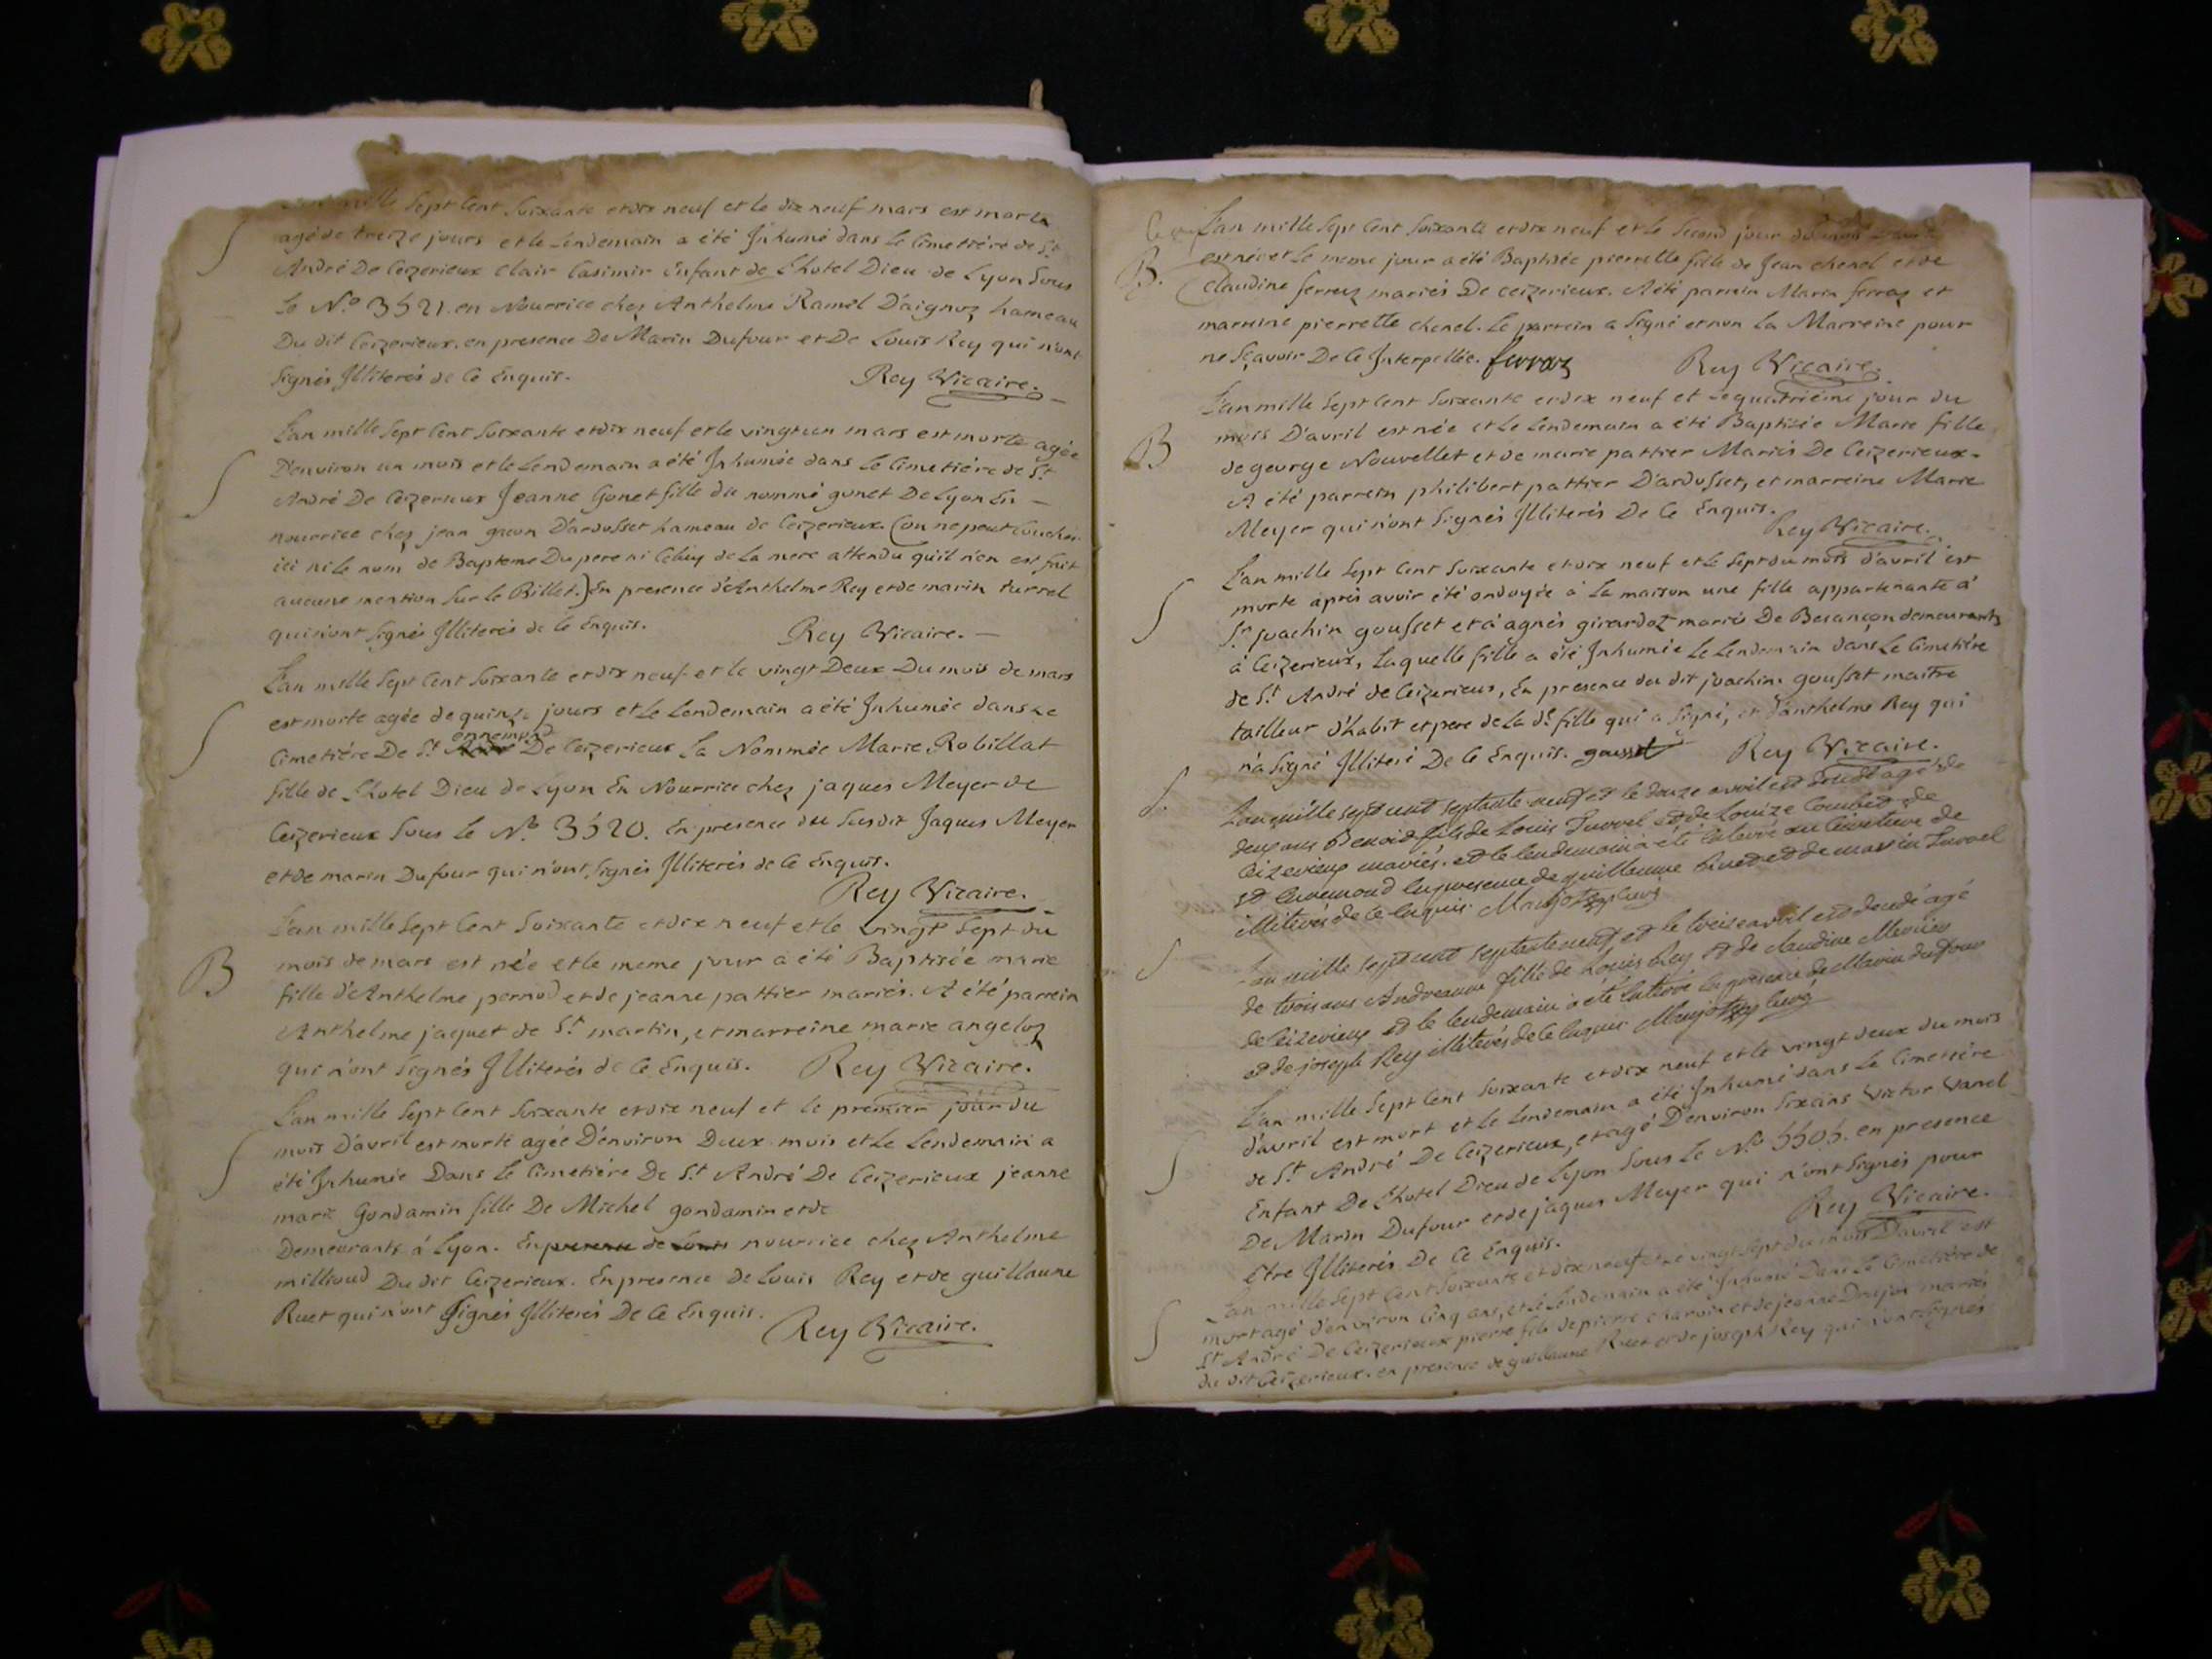 mille Sept Cent Soixante et dix neuf et le dix neuf mars est morte
S
agé de treize jours et le Lendemain a été Inhumé dans Le Cimetiére de St
André De Ceizerieux Clair Casimir Enfant de L'hotel Dieu de Lyon Sous
Le No 3521. en Nourrice chez Anthelme Ramel D'aignoz hameau
Du dit Ceizerieux. en presence De Marin Dufour et De Louis Rey qui n'ont
Signés Illiterés de Ce Enquis. Rey Vicaire.
L'an mille Sept Cent Soixante et dix neuf et le vingt un mars est morte agée
S
D'environ un mois et le Lendemain a été Inhumée dans Le Cimetiére de St
André De Ceizerieux Jeanne Gonet fille du nommé gonet De Lyon En
nourrice chez jean D'ardosset hameau de Ceizerieux (on ne peut Coucher
ici ni le nom de Bapteme Du pere ni Celuy de la mere attendu qu'il n'en est fait
aucune mention Sur le Billet.) En presence d'Anthelme Rey et de marin turrel
qui n'ont Signés Illiterés de Ce Enquis. Rey Vicaire.
L'an mille Sept Cent Soixante et dix neuf et le vingt Deux Du mois de mars
S
est morte agée de quinze jours et Le Lendemain a été Inhumée dans Le
ennemond
Cimetiére De St De Ceizerieux La Nommée Marie Robillat
fille de L'hotel Dieu de Lyon En Nourrice chez jaques Meyer de
Ceizerieux Sous Le No. 3520. En presence du Susdit Jaques Meyer
et de marin Dufour qui n'ont Signés Illiterés de Ce Enquis.
Rey Vicaire.
L'an mille Sept Cent Soixante et dix neuf et le vingt Sept du
B
mois de mars est née et le meme jour a été Baptisée marie
fille d'Anthelme pernod et de jeanne pattier mariés. A été parrein
Anthelme jaquet de St martin, et marreine marie angeloz
qui n'ont Signés Illiterés de Ce Enquis. Rey Vicaire.
L'an mille Sept Cent Soixante et dix neuf et le premier jour du
S
mois D'avril est morte agée D'environ Deux mois et Le Lendemain a
été Inhumée Dans Le Cimetiére De St André De Ceizerieux jeanne
marie Gondamin fille De Michel gondamin et de
Demeurants á Lyon. En presence de Louis nourrice chez Anthelme
millioud Du dit Ceizerieux. En presence De Louis Rey et de guillaume
Ruet qui n'ont Signés Illiterés De Ce Enquis.
Rey Vicaire.
L'an mille Sept Cent Soixante et dix neuf et le Second jour du mois
B.
est née et Le meme jour a été Baptisée pierrette fille de Jean chenel et de
Claudine ferraz mariés De Ceizerieux. A été parrein Marin ferraz et
marreine pierrette chenel. Le parrein a Signé et non La Marreine pour
ne Sçavoir De Ce Interpellée. ferraz Rey Vicaire.
L'an mille Sept Cent Soixante et dix neuf et Le quatriéme jour du
B
mois D'avril est née et Le Lendemain a été Baptisée Marie fille
de george Nouvellet et de marie pattier Mariés De Ceizerieux.
A été parrein philibert pattier D'ardosset, et marreine Marie
Meyer qui n'ont Signés Illiterés De Ce Enquis.
Rey Vicaire.
L'an mille Sept Cent Soixante et dix neuf et le Sept du mois d'avril est
S
morte aprés avoir été ondoyée à La maison une fille appartenante á
Sr joachin gousset et á agnés girardot mariés De Besançon demeurants
à Ceizerieux, Laquelle fille a été Inhumée Le Lendemain dans Le Cimetiére
de St André de Ceizerieux, En presence du dit joachim gousset maitre
tailleur d'habit et pere de la de fille qui a Signé, et d'anthelme Rey qui
n'a Signé Illiteré De Ce Enquis. gousset Rey Vicaire.
S.
L'an mille sept cent septante neuf et le douze avril est decedé agé de
deux ans Benoit fils de Louis Turrel et de Louize Combet de
Ceizerieux mariés. et le lendemain a été Enterré au Cimetiere de
St Ennemond En presence de guillaume Ruet et de marin Turrel
illiterés de Ce Enquis
S
L'an mille sept cent septante neuf et le treize avril est decedé agé
de trois ans Andreanne fille de Louis Rey et de Claudine
de Ceizerieux et le lendemain a été Enterré En presence de Marin dufour
et de joseph Rey illiterés de Ce Enquis
L'an mille Sept Cent Soixante et dix neuf et le vingt deux du mois
S
d'avril est mort et le Lendemain a été Inhumé dans Le Cimetiére
de St André De Ceizerieux, et agé D'environ Six ans Victor Vanel
Enfant De L'hotel Dieu de Lyon Sous Le No 5505. en presence
De Marin Dufour et de jaques Meyer qui n'ont Signés pour
Etre Illiterés De Ce Enquis. Rey Vicaire.
L'an mille Sept Cent Soixante et dix neuf et Le vingt Sept du mois D'avril est
S
mort agé d'environ Cinq ans, et Le Lendemain a été Inhumé Dans Le Cimetiére de
St André De Ceizerieux pierre fils de pierre charvin et de jeanne mariés
du dit Ceizerieux. en presence de guillaume Ruet et de joseph Rey qui n'ont Signés